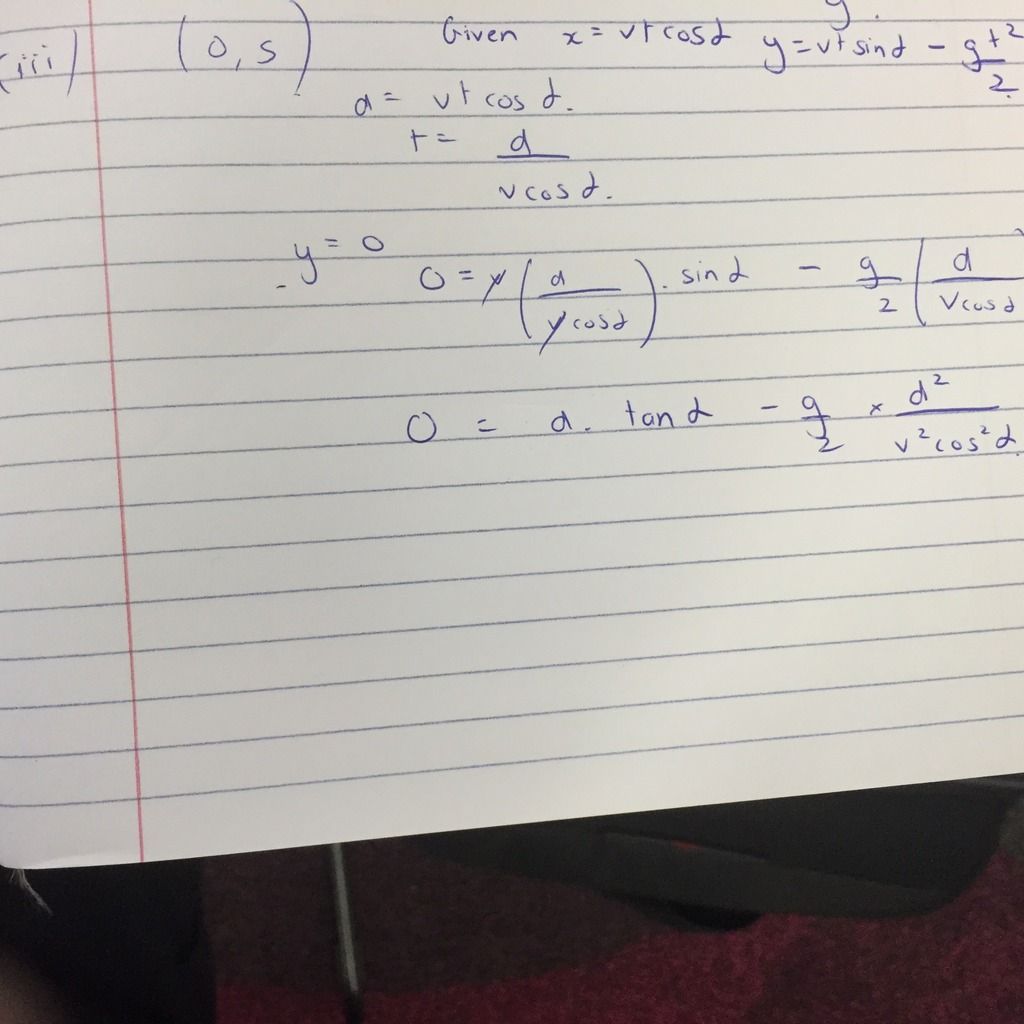 (iii) (0, s) Given x = vt cos α y = vt sin α - gt²/2
d = vt cos α.
t = d / v cos α.
- y = 0
0 = v ( d / v cos α ) . sin α - g/2 ( d / v cos α
0 = d. tan α - g/2 × d² / v² cos² α.